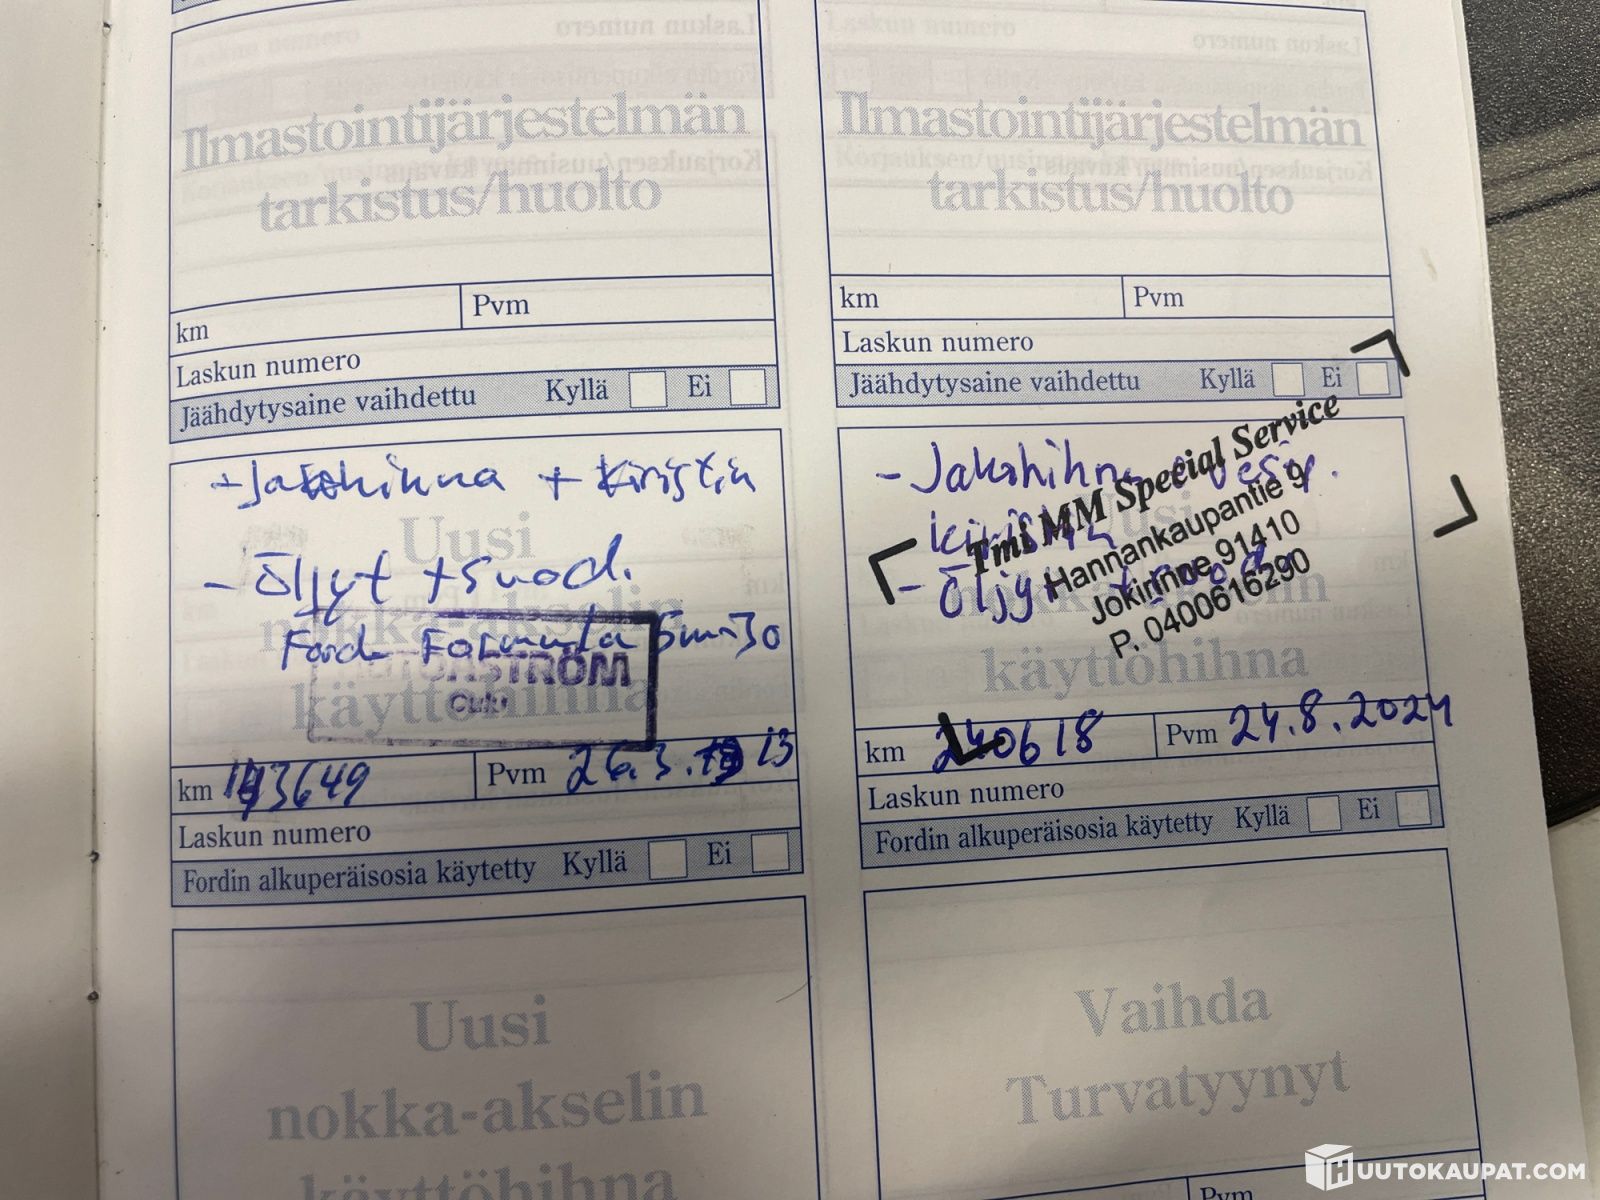 Ilmastointijärjestelmän
tarkistus/huolto
km
Pvm
Laskun numero
Jäähdytysaine vaihdettu Kyllä Ei
- Jakohihna + kiristin
- Öljyt + suod.
Ford Formula 5w-30
Uusi
nokka-akselin
käyttöhihna
km 143649
Pvm 26.3. 13
Laskun numero
Fordin alkuperäisosia käytetty Kyllä Ei
Uusi
nokka-akselin
käyttöhihna
Ilmastointijärjestelmän
tarkistus/huolto
km
Pvm
Laskun numero
Jäähdytysaine vaihdettu Kyllä Ei
- Jakohihna
- Öljyt + suod.
Tmi MM Special Service
Hannankaupantie 9
Jokirinne 91410
P. 0400616290
Uusi
nokka-akselin
käyttöhihna
km 240618
Pvm 24.8.2024
Laskun numero
Fordin alkuperäisosia käytetty Kyllä Ei
Vaihda
Turvatyynyt
Pvm
HUUTOKAUPAT.COM